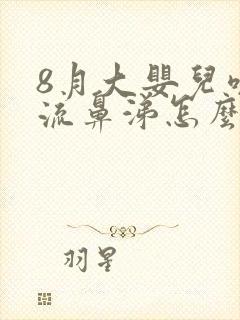 8月大嬰兒
流鼻涕怎麼
羽星